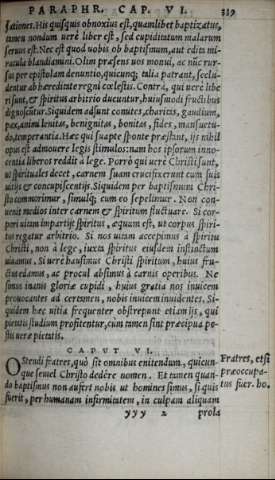 PARAPHR. CAP. VI. 339
sationes. His quisquis obnoxius est, quamlibet baptizatus,
tamen nondum uerè liber est, sed cupiditatum malarum
seruus est. Nec est quòd uobis ob baptismum, aut edita mi-
racula blandiamini. Olim præsens uos monui, ac nūc rur-
sus per epistolam denuntio, quicunq; talia patrant, seclu-
dentur ab hæreditate regni cœlestis. Contrà, qui uerè libe
ri sunt, & spiritus arbitrio ducuntur, huiusmodi fructibus
dignoscūtur. Siquidem adsunt comites, charitas, gaudium,
pax, animi lenitas, benignitas, bonitas, fides, mansuetu-
do, temperantia. Hæc qui suapte sponte præstant, ijs nihil
opus est admouere legis stimulos: nam hos ipsorum inno-
centia liberos reddit à lege. Porrò qui uerè Christi sunt,
ut spirituales decet, carnem suam crucifixerunt cum suis
uitijs & concupiscentijs. Siquidem per baptismum Chri-
sto commorimur, simulq; cum eo sepelimur. Non con-
uenit medios inter carnem & spiritum fluctuare. Si cor-
pori uitam impartijt spiritus, æquum est, ut corpus spiri-
tus regatur arbitrio. Si nos uitam accepimus à spiritu
Christi, non à lege, iuxta spiritus eiusdem instinctum
uiuamus. Si uerè hausimus Christi spiritum, huius fru-
ctus edamus, ac procul absimus à carnis operibus. Ne
simus inanis gloriæ cupidi, huius gratia nos inuicem
prouocantes ad certamen, nobis inuicem inuidentes. Si-
quidem hæc uitia frequenter obstrepunt etiam ijs, qui
pietatis studium profitentur, cùm tamen sint præcipua pe-
stis ueræ pietatis.
CAPVT VI.
OStendi fratres, quò sit omnibus enitendum, quicun-
que semel Christo dedêre nomen. Et tamen quan-
do baptismus non aufert nobis ut homines simus, si quis
fuerit, per humanam infirmitatem, in culpam aliquam
Fratres, etsi
præoccupa-
tus fuer. ho.
yyy 2 prola